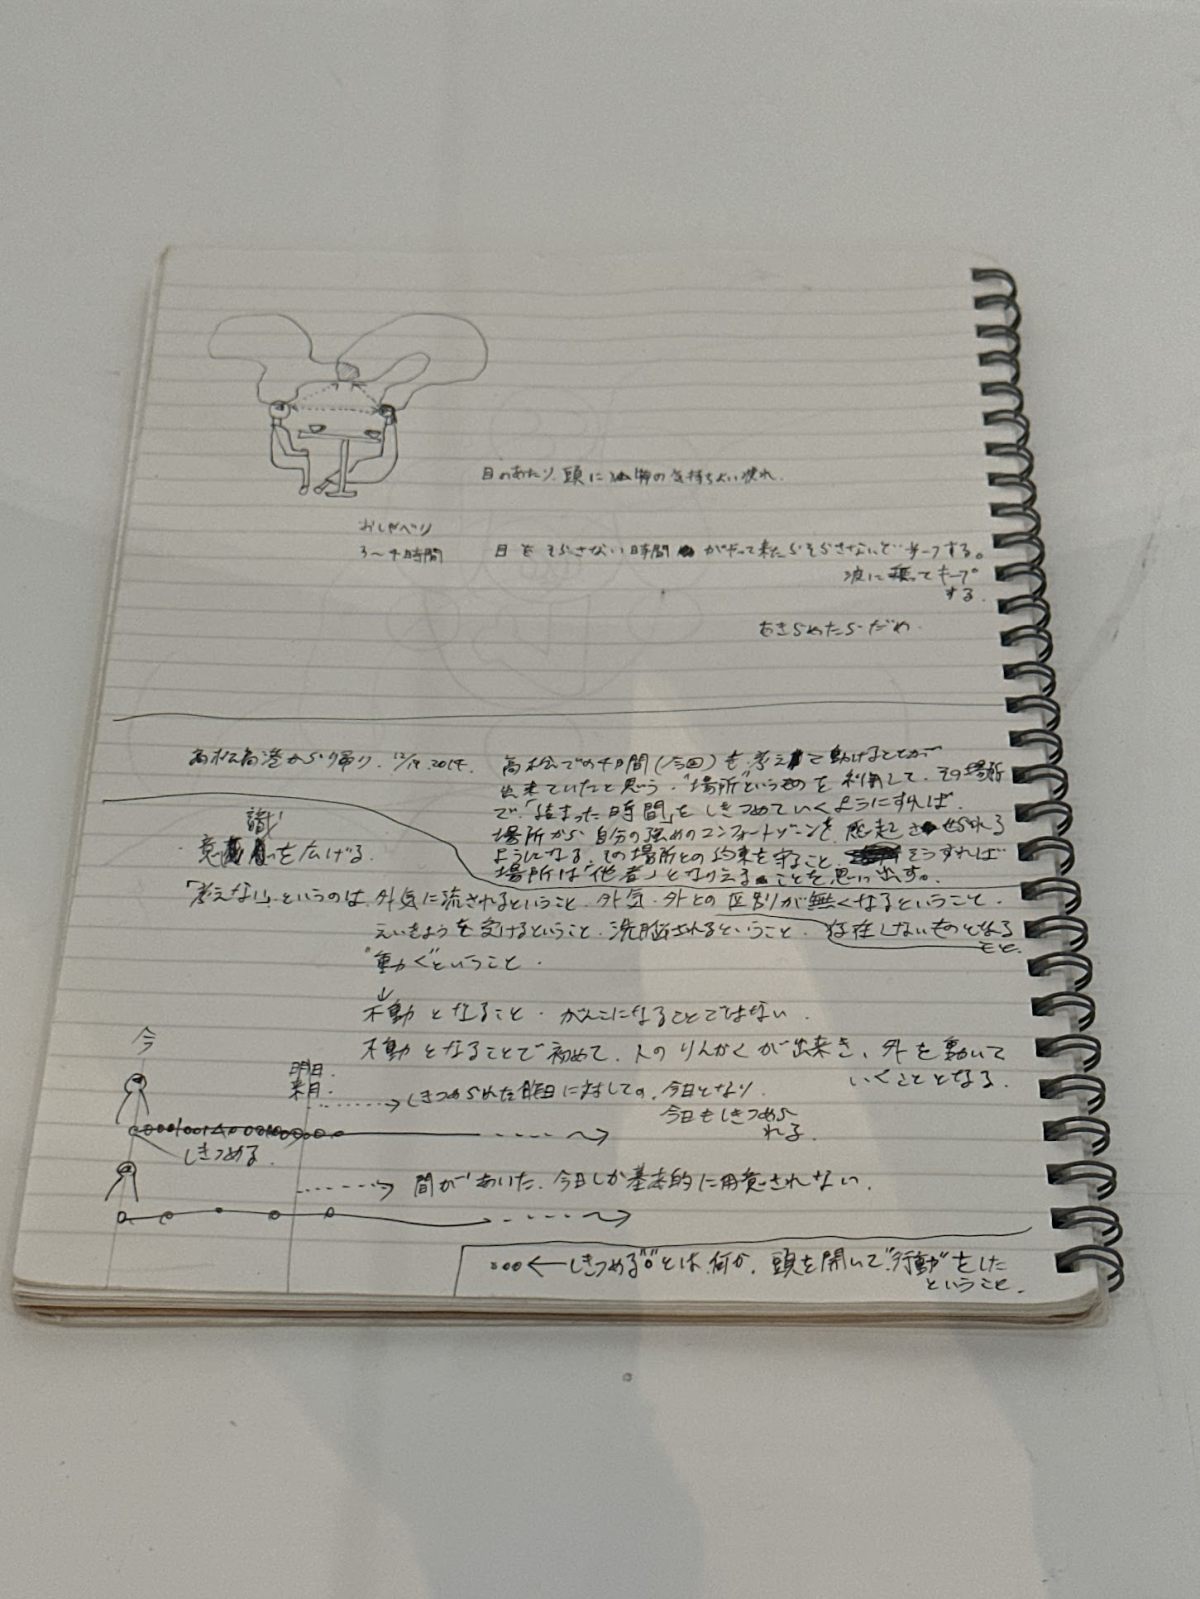 目のあたり、頭に 独特の気持ちよい疲れ.
おしゃべり
3〜4時間
目を そらさない時間 がやって来たらそらさないで キープする。
波に乗ってキープ
する.
あきらめたらだめ.
高松高港から帰り. 12/ 2014.
高松での4日間(今回)も 考えて動けることが
出来ていたと思う. "場所"というものを 利用して. その場所
で「詰まった時間」を しきつめていくようにすれば.
場所から 自分の強めのコンフォートゾーンを. 想起 させられる
ようになる. その場所との約束を守ること. そうすれば
場所は「他者」となりえることを思い出す。
識
・意 を広げる.
「考えない」というのは、外気に流されるということ. 外気・外との区別が無くなるということ.
えいきょうを受けるということ. 洗脳されるということ. 存在しないものとなる
こと.
"動く"ということ.
↓
不動 となること. がんこになることではない.
不動 となることで初めて. 人の りんかくが出来き、外を動いて
いくこととなる.
今
明日.
来月.
しきつめられた昨日に対しての. 今日となり.
今日もしきつめら
れる.
しきつめる.
間があいた. 今日しか基本的に用意されない.
ooo←しきつめる"o"とは何か. 頭を開いて"行動"をした
ということ.